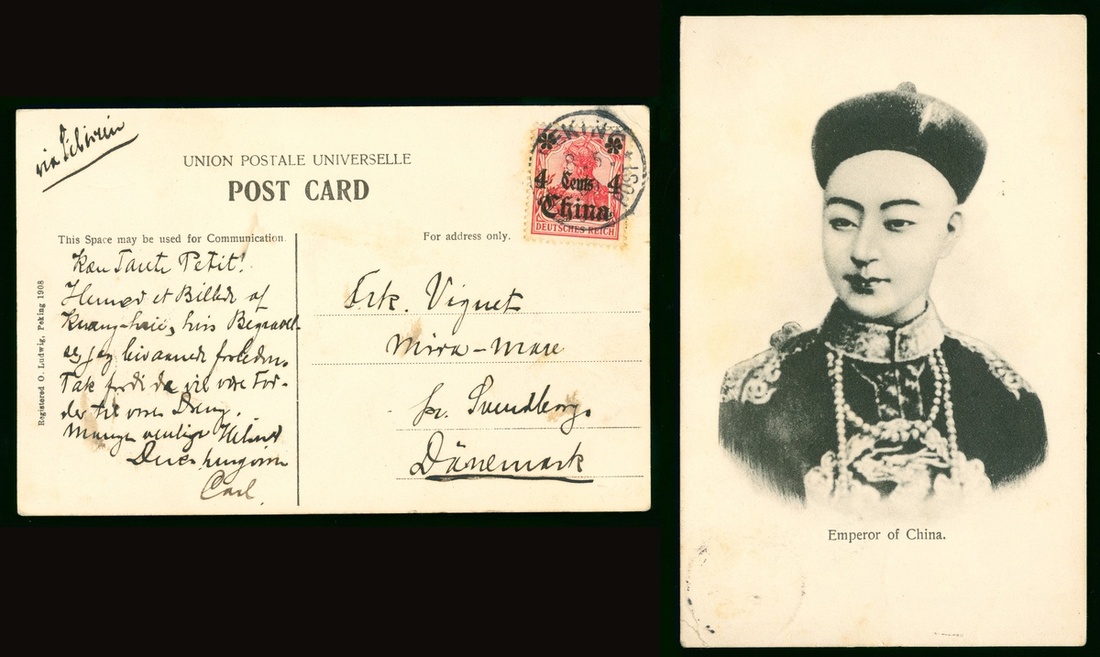 via Sibirien
UNION POSTALE UNIVERSELLE
POST CARD
PEKING
POST
4 Cents 4
China
DEUTSCHES REICH
This Space may be used for Communication.
For address only.
Registered O. Ludwig, Peking 1908
Kære Tante Petit!
Hermed et Billede af
hans Begravel-
jeg
Tak fordi De vil være Fad-
der til vores Dreng.
Mange venlige Hilsner
Deres hengivne
Carl
Frk. Viguet
Mira-Mare
pr. Svendborg
Dänemark
Emperor of China.